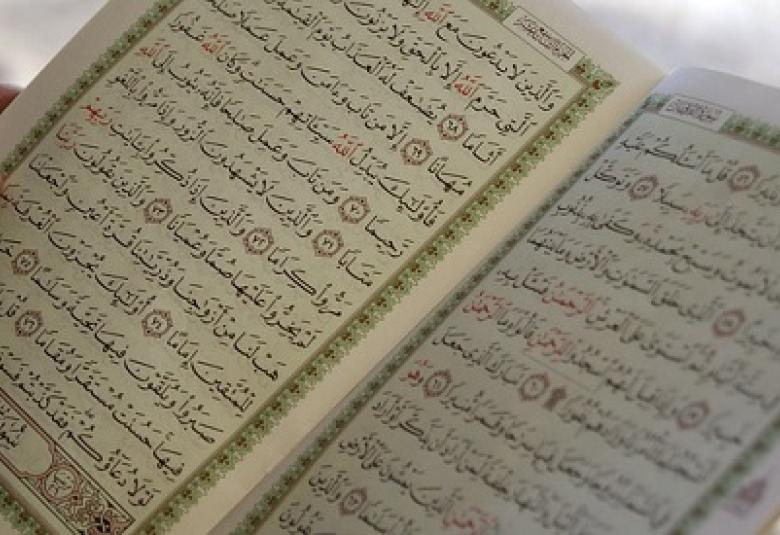 ٥٦ قُلْ مَا أَسْأَلُكُمْ عَلَيْهِ
أَن يَتَّخِذَ إِلَىٰ رَبِّهِ سَبِيلًا ٥٧ وَتَوَكَّلْ
لَا يَمُوتُ وَسَبِّحْ بِحَمْدِهِ وَكَفَىٰ بِهِ بِذُنُوبِ
٥٨ الَّذِي خَلَقَ السَّمَاوَاتِ وَالْأَرْضَ وَمَا بَيْنَهُمَا
ثُمَّ اسْتَوَىٰ عَلَى الْعَرْشِ الرَّحْمَٰنُ فَاسْأَلْ بِهِ
خَبِيرًا ٥٩ وَإِذَا قِيلَ لَهُمُ اسْجُدُوا لِلرَّحْمَٰنِ قَالُوا وَمَا الرَّحْمَٰنُ
أَنَسْجُدُ لِمَا تَأْمُرُنَا وَزَادَهُمْ نُفُورًا ۩ ٦٠ تَبَارَكَ الَّذِي جَعَلَ
بُرُوجًا وَجَعَلَ فِيهَا سِرَاجًا وَقَمَرًا مُّنِيرًا ٦١ وَهُوَ
وَالنَّهَارَ خِلْفَةً لِّمَنْ أَرَادَ أَن يَذَّكَّرَ أَوْ أَرَادَ
الرَّحْمَٰنِ الَّذِينَ يَمْشُونَ عَلَى الْأَرْضِ
سَلَامًا ٦٣ وَالَّذِينَ
يَقُولُونَ
وَالَّذِينَ لَا يَدْعُونَ مَعَ اللَّهِ إِلَٰهًا
الَّتِي حَرَّمَ اللَّهُ إِلَّا بِالْحَقِّ وَلَا يَزْنُونَ
أَثَامًا ٦٨ يُضَاعَفْ لَهُ الْعَذَابُ يَوْمَ الْقِيَامَةِ
مُهَانًا ٦٩ إِلَّا مَن تَابَ وَآمَنَ وَعَمِلَ عَمَلًا صَالِحًا
فَأُولَٰئِكَ يُبَدِّلُ اللَّهُ سَيِّئَاتِهِمْ حَسَنَاتٍ وَكَانَ اللَّهُ غَفُورًا
رَّحِيمًا ٧٠ وَمَن تَابَ وَعَمِلَ صَالِحًا فَإِنَّهُ يَتُوبُ إِلَى اللَّهِ
مَتَابًا ٧١ وَالَّذِينَ لَا يَشْهَدُونَ الزُّورَ وَإِذَا مَرُّوا بِاللَّغْوِ
مَرُّوا كِرَامًا ٧٢ وَالَّذِينَ إِذَا ذُكِّرُوا بِآيَاتِ رَبِّهِمْ
لَمْ يَخِرُّوا عَلَيْهَا صُمًّا وَعُمْيَانًا ٧٣ وَالَّذِينَ يَقُولُونَ رَبَّنَا
هَبْ لَنَا مِنْ أَزْوَاجِنَا وَذُرِّيَّاتِنَا قُرَّةَ أَعْيُنٍ وَاجْعَلْنَا
لِلْمُتَّقِينَ إِمَامًا ٧٤ أُولَٰئِكَ يُجْزَوْنَ الْغُرْفَةَ بِمَا
صَبَرُوا وَيُلَقَّوْنَ فِيهَا تَحِيَّةً وَسَلَامًا ٧٥
فِيهَا حَسُنَتْ مُسْتَقَرًّا وَمُقَامًا ٧٦ قُلْ
لَوْلَا دُعَاؤُكُمْ فَقَدْ كَذَّبْتُمْ فَسَوْفَ